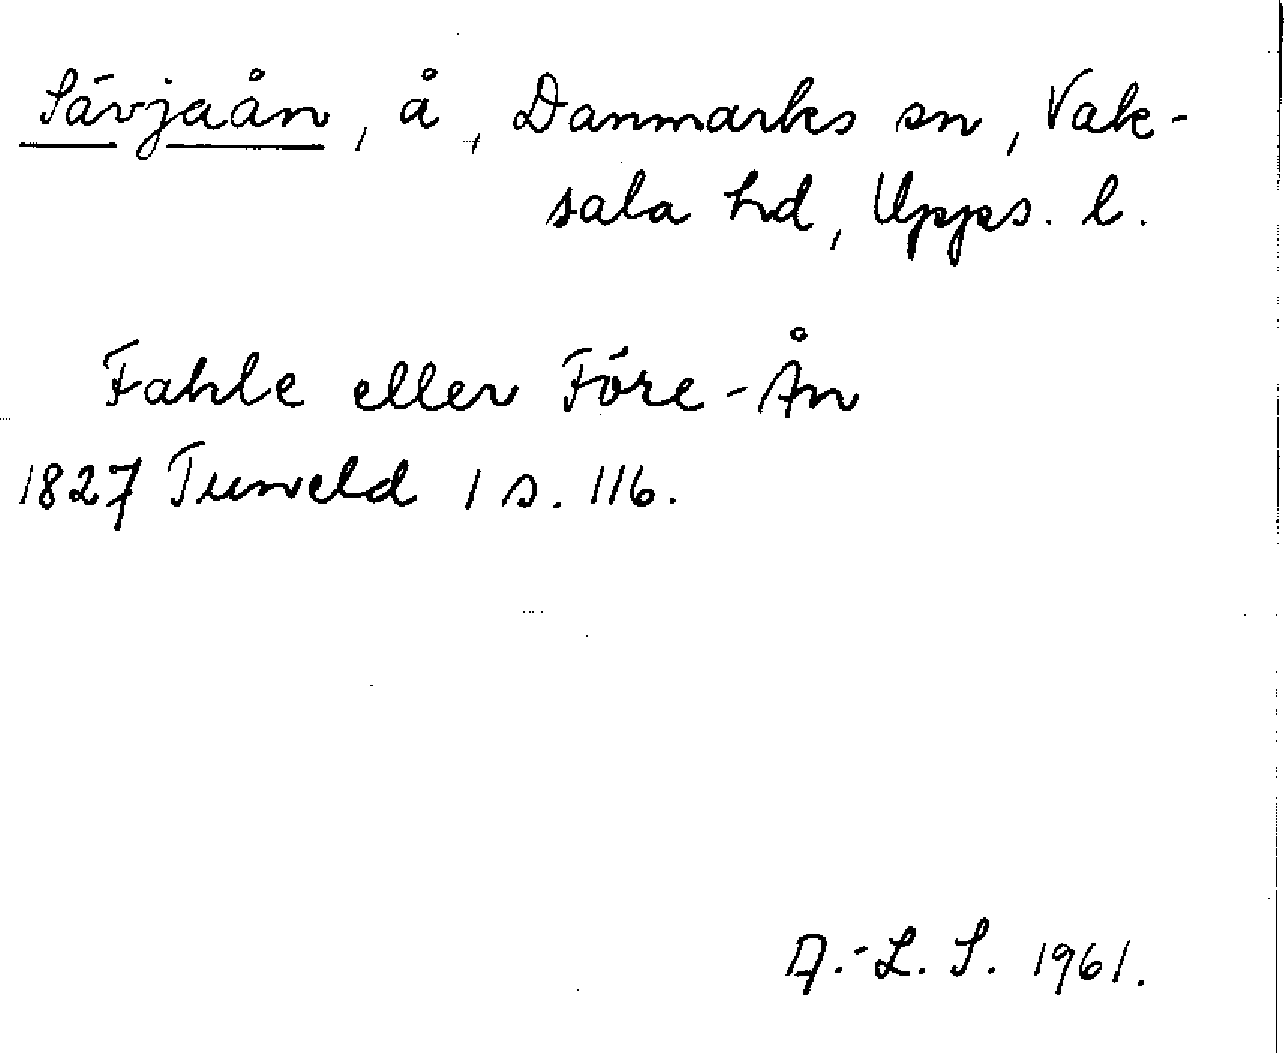 Sävjaån, å, Danmarks sn, Vak-
sala hd, Upps. l.
Fahle eller Före-Ån
1827 Tuneld 1 s. 116.
A.-L. S. 1961.